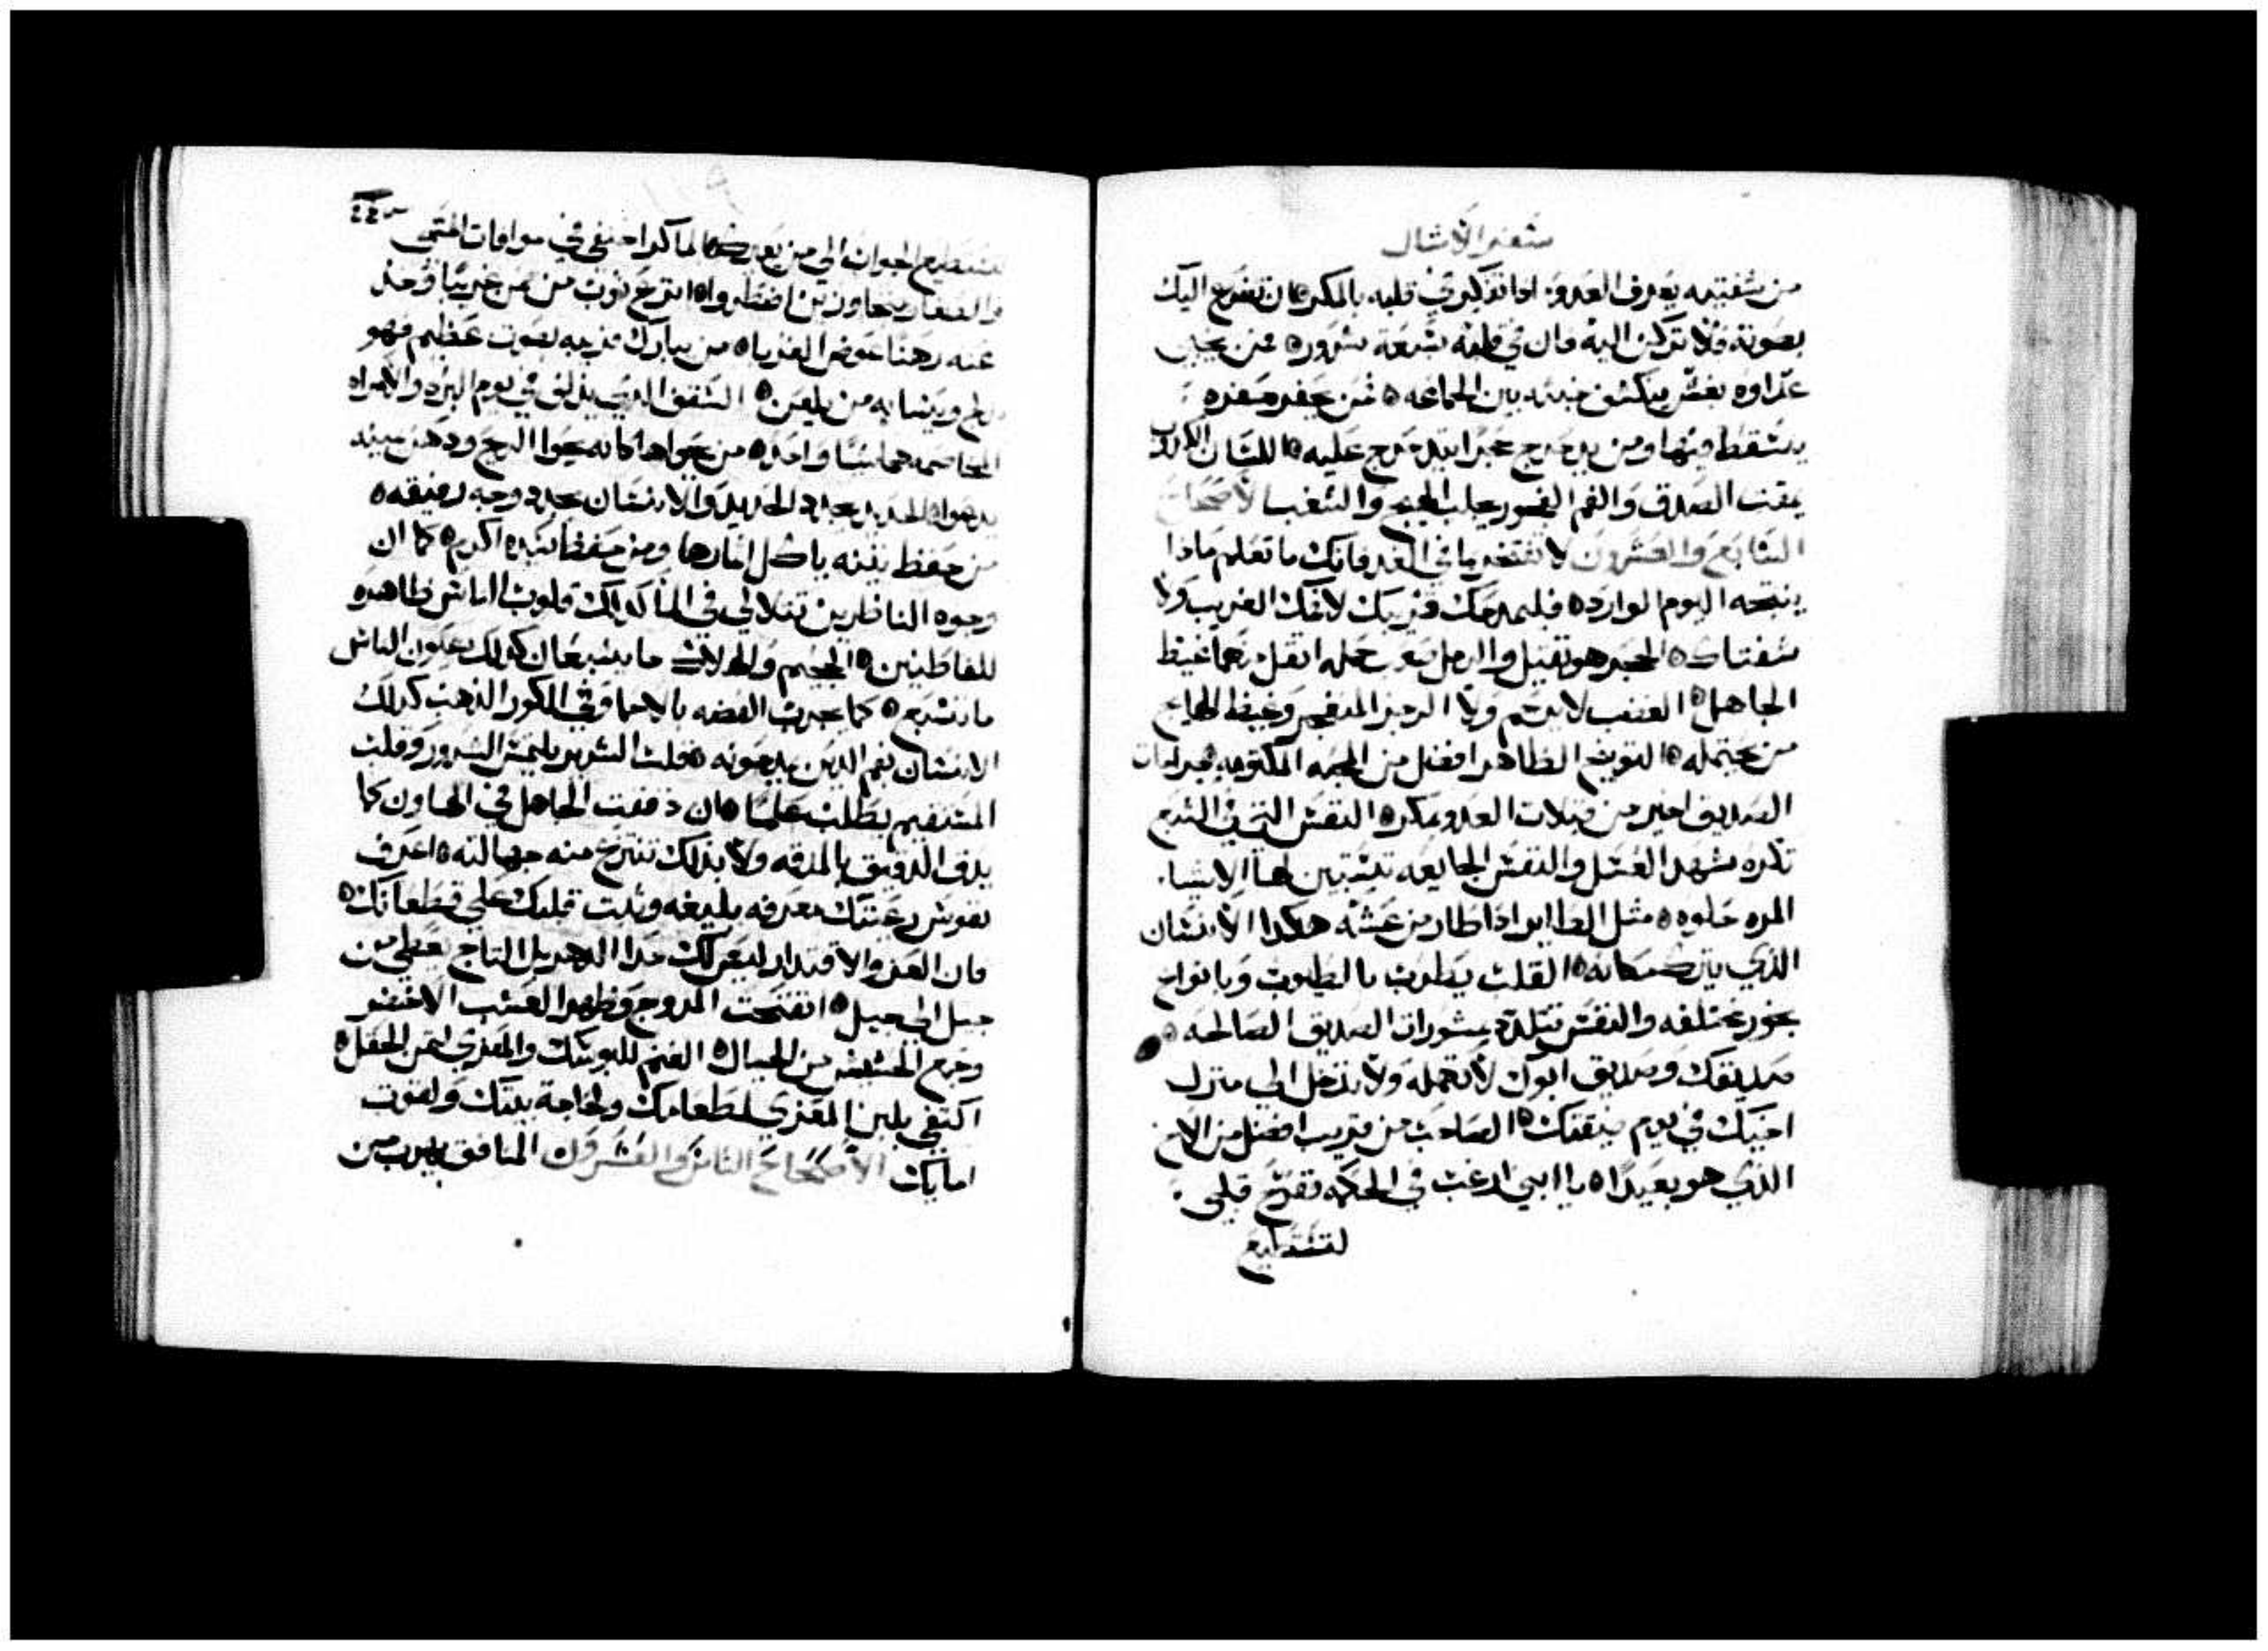 سفر الامثال
من شفتيه يعرف العدو اذا تفكر في قلبه بالمكر ان تضرع اليك
بصوته فلا تركن اليه فان في قلبه سبعة شرور من يخبي
عداوه بغش ينكشف خبثه بين الجماعه فمن يحفر حفره
يسقط فيها ومن يدحرج حجرا يتدحرج عليه اللسان الكذب
يمقت الصدق والفم الغير يجلب الشغب الاصحاح
السابع والعشرون لا تفتخر بما في الغد فانك ما تعلم ماذا
ينتجه اليوم الوارد فليمدحك قريبك لا فمك الغريب ولا
شفتاك الحجر هو ثقيل والرمل حمله اثقل منهما غيظ
الجاهل الغضب لا يرحم ولا الرجز المنفجر وغيظ الهايج
من يحتمله التوبيخ الظاهر افضل من المحبه المكتومه جراحات
الصديق اخير من قبلات العدو بمكر النفس التي في الشبع
تكره شهد العسل والنفس الجايعه تستبين لها الاشيا
المره حلوه مثل الطاير اذا طار من عشه هكذا الانسان
الذي يترك مكانه القلب يطرب بالطيوب وبانواع
بخور مختلفه والنفس تتلذذ بمشورات الصديق الصالحه
صديقك وصديق ابوك لا تهمله ولا تدخل الي منزل
اخيك في يوم ضيقتك الصاحب من قريب افضل من الاخ
الذي هو بعيدا يا ابني ارغب في الحكمه تفرح قلبي
لتستطيع
٢٤٤
لتستطيع الجواب الي من يعيرك الماكر اختفي في موافات
والصغار بتجاوزين اضطروا انزع ثوب من ضمن غريبا وخذ
عنه رهنا عوض الغربا من يبارك قريبه بصوت عظيم فهو
ويشابه من يلعن السقف الذي يدلف في يوم البرد والامراه
المخاصمه هما شيا واحد من يحواها كانه يحوا الريح ودهن بيده
يدعوا الحديد يحدد الحديد والانسان يحدد وجه رفيقه
من حفظ تينه ياكل اثمارها ومن حفظ سيده اكرم كما ان
وجوه الناظرين تتلالي في الما كذلك قلوب الناس ظاهره
للفاطنين الجحيم والهلاك ما يشبعان كذلك عيون الناس
ما تشبع كما يجرب الفضه بالاحما وفي الكور الذهب كذلك
الانسان بفم الذين يمدحونه قلب الشرير يلتمس الشرور وقلب
المستقيم يطلب علما ان دققت الجاهل في الهاون كما
يدق الدقيق بالمدقه ولا بذلك تنتزع منه جهالته اعرف
نفوس رعيتك معرفه بليغه وثبت قلبك علي قطعانك
فان العز والاقتدار ليس لك مدا الدهر بل التاج يعطي من
جيل الي جيل انفتحت المروج وظهر العشب الاخضر
وجمع الحشيش من الجبال الغنم للبوسك والمعزي لثمن الحقل
اكتفي بلبن المعزي لطعامك ولحاجة بيتك ولقوت
امايك الاصحاح الثامن والعشرون المنافق يهرب من